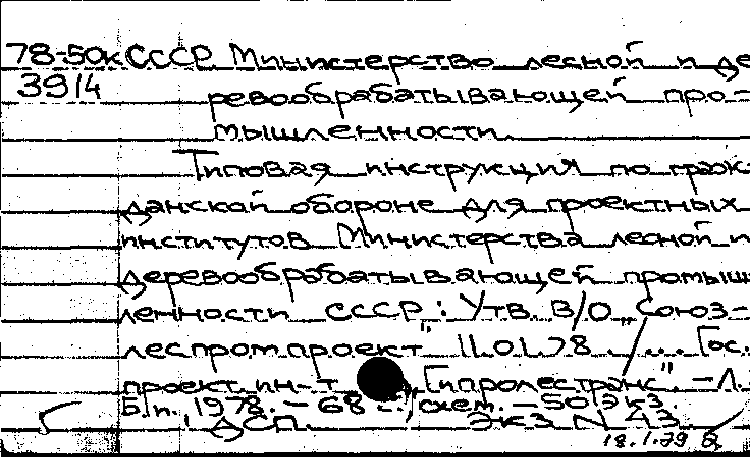 78-50к СССР. Министерство лесной и де
3914 ревообрабатывающей про-
мышленности.
Типовая инструкция по граж-
данской обороне для проектных
институтов Министерства лесной и
деревообрабатывающей промыш
ленности СССР: Утв. В/О „Союз-
леспромпроект" 11.01.78. ... Гос.
проект. ин-т „Гипролестранс". - Л.
Б.и., 1978. - 68 с., схем. - 50 экз.
ДСП. Экз N 43
18.1.79